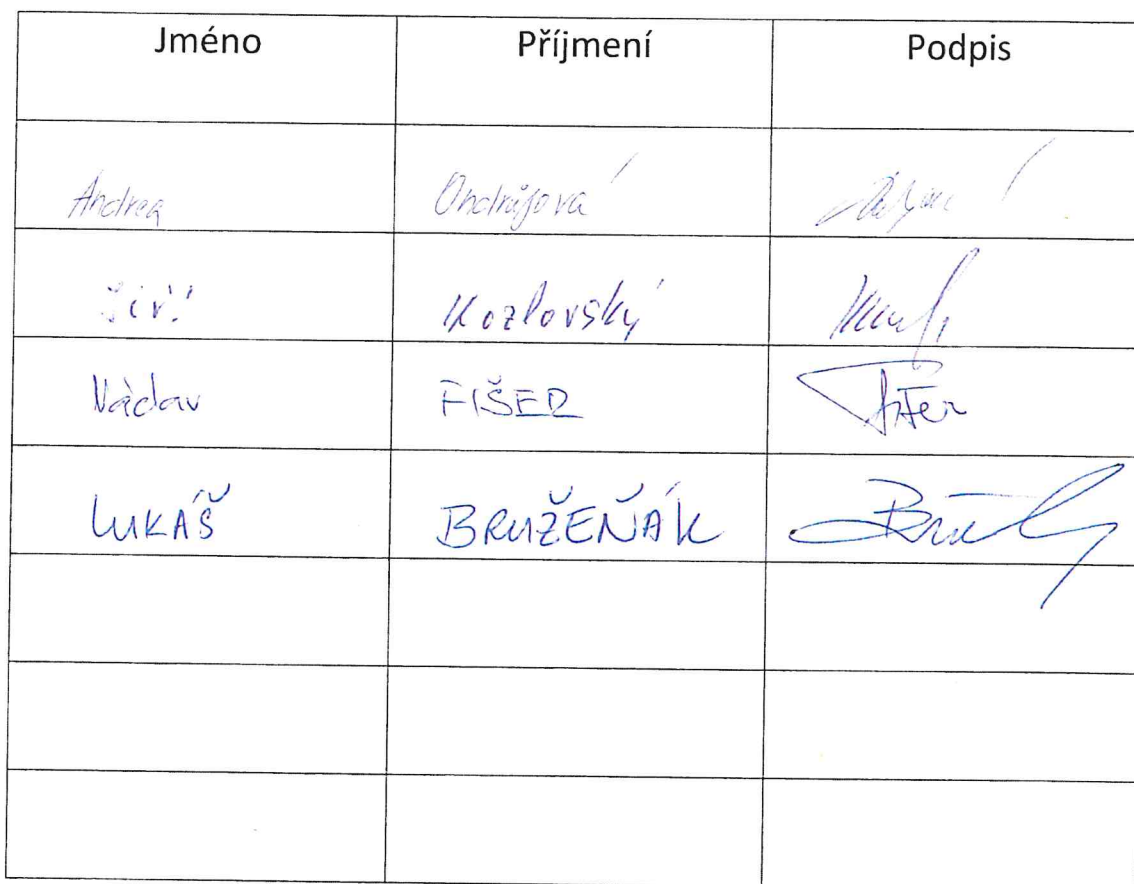 Jméno Příjmení Podpis
Andrea Ondrůjová
Jiří Kozlovský
Václav FIŠER Fišer
LUKÁŠ BRUŽEŇÁK